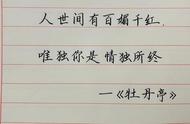 人世间有百媚千红,
唯独你是情独所终
—《牡丹亭》